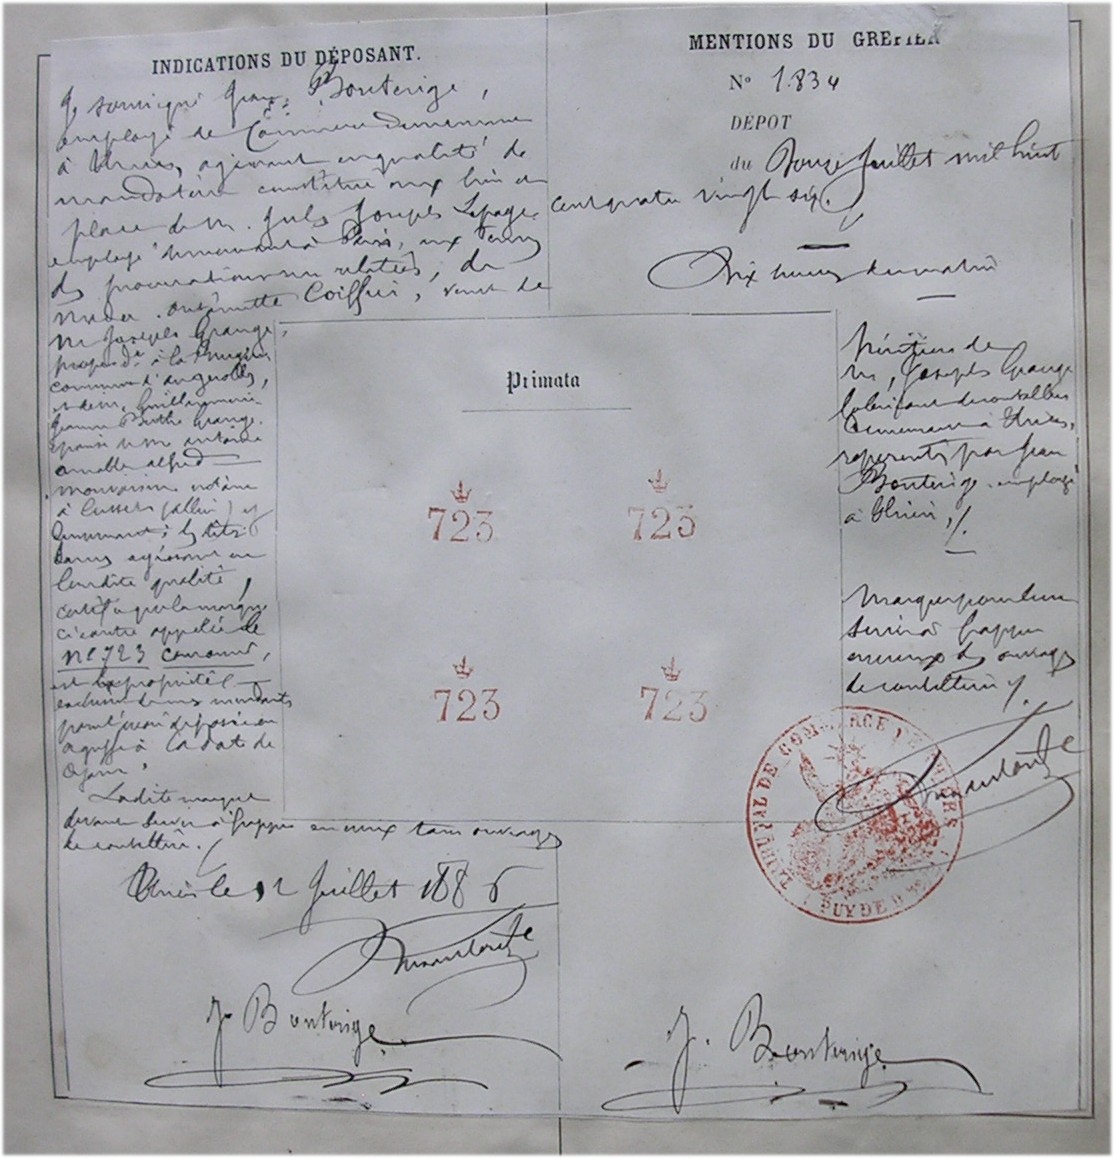 INDICATIONS DU DÉPOSANT.
Je soussigné Jean Bonterige,
employé de Commerce demeurant
à Thiers, agissant en qualité de
mandataire constitué aux lieu et
place de M. Jules Joseph Lepage,
employé demeurant à Paris, aux termes
des procurations relatées, de
Mada Antoinette Coiffier, veuve de
M Joseph Grange,
propre à la
commune d'
Guillaumine
Jeanne Grange,
épouse de M. Antoine
Amable Alfred
notaire
à Cusset (Allier) y
demeurant; les dites
dames agissant en
leur dite qualité,
certifie que la marque
ci contre appelée le
No 723 Couronné,
est la propriété
exclusive de mes mandants
pour l'avoir déposée au
greffe à la date de
ce jour.
La dite marque
devant servir à frapper en creux tous ouvrages
de coutellerie.
Thiers le 12 Juillet 1886
J. Bonterige
MENTIONS DU GREFFIER
No 1.834
DEPOT
du Douze Juillet mil huit
cent quatre vingt six.
Dix heures du matin
Primata
723
723
723
723
Héritiers de
M, Joseph Grange
fabricant de coutellerie
demeurant à Thiers,
représentés par Jean
Bonterige employé
à Thiers ./.
Marque pour leur
servir à frapper
en creux des ouvrages
de coutellerie ./.
TRIBUNAL DE COMMERCE DE THIERS
PUY DE D
J. Bonterige